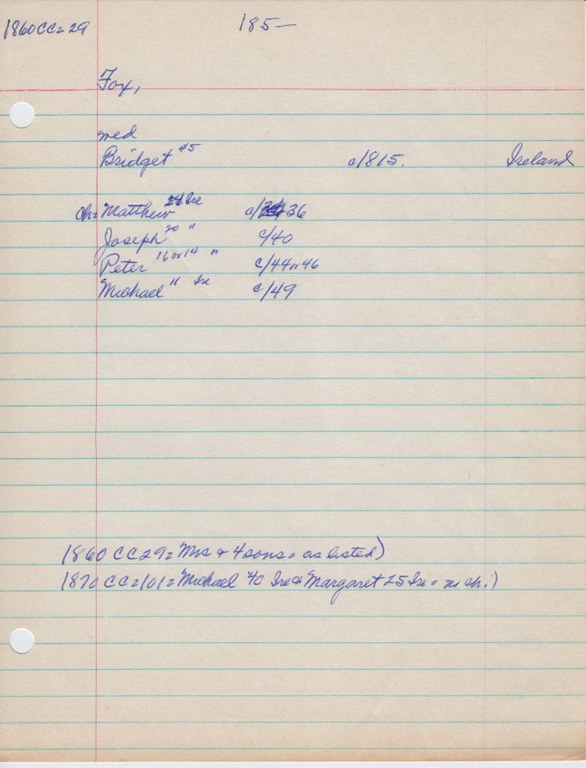 1860CC=29
185—
Fox,
med
Bridget 45 c/1815. Ireland
ch= Matthew 24 Ire c/36
Joseph 20 " c/40
Peter 16 or 14 " c/44 or 46
Michael 11 Ire c/49
1860 CC29= Mrs & 4 sons = as listed)
1870 CC=101= Michael 40 Ire & Margaret 25 Ire = no ch.)